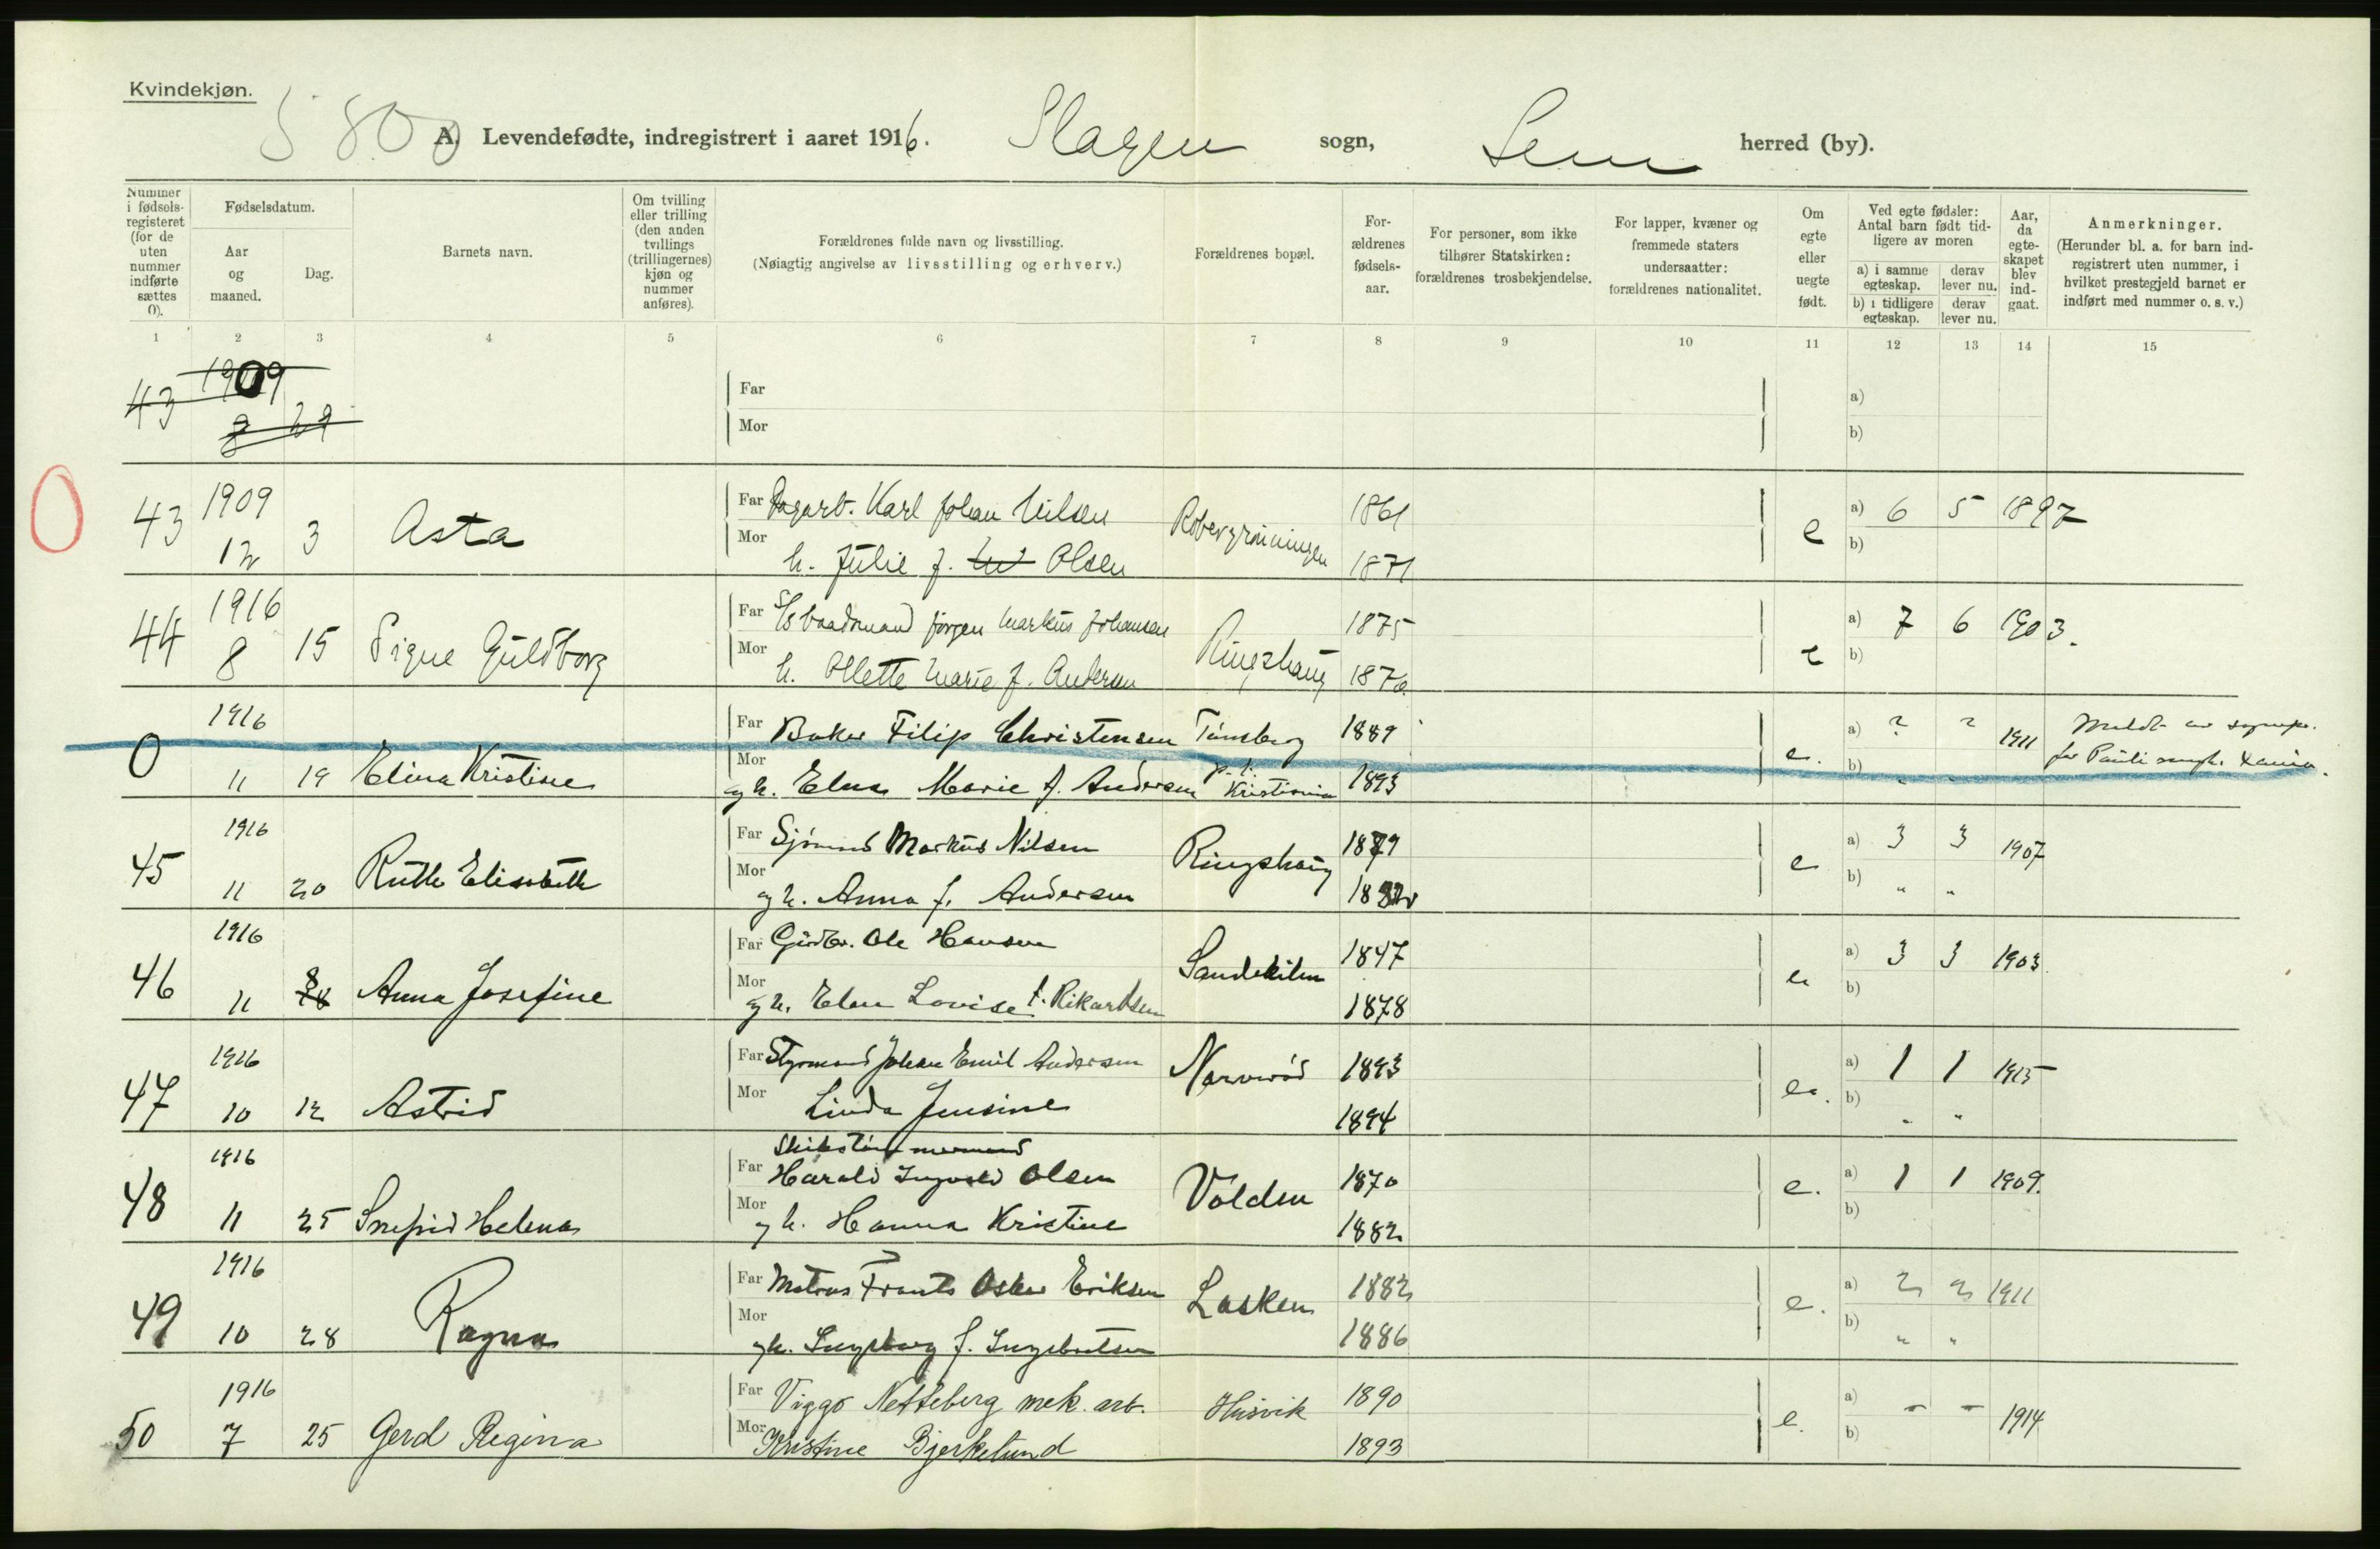 Kvindekjøn.
5 800
A. Levendefødte, indregistrert i aaret 1916. Slagen sogn, Sem herred (by).
Nummer i fødselsregisteret (for de uten nummer indførte sættes 0).
Fødselsdatum.
Aar og maaned.
Dag.
Barnets navn.
Om tvilling eller trilling (den anden tvillings (trillingernes) kjøn og nummer anføres).
Forældrenes fulde navn og livsstilling.
(Nøiagtig angivelse av livsstilling og erhverv.)
Forældrenes bopæl.
For-ældrenes fødsels-aar.
For personer, som ikke tilhører Statskirken: forældrenes trosbekjendelse.
For lapper, kvæner og fremmede staters undersaatter: forældrenes nationalitet.
Om egte eller uegte født.
Ved egte fødsler: Antal barn født tidligere av moren
a) i samme egteskap. derav lever nu.
b) i tidligere egteskap. derav lever nu.
Aar, da egteskapet blev indgaat.
Anmerkninger.
(Herunder bl. a. for barn indregistrert uten nummer, i hvilket prestegjeld barnet er indført med nummer o. s. v.)
1 2 3 4 5 6 7 8 9 10 11 12 13 14 15
43 1909 Far a)
Mor b)
0
43 1909 12 3 Asta
Far Dagarb. Karl Johan Nilsen Robergrønningen 1861 e a) 6 5 1897
Mor h. Julie f. Olsen 1871 b)
44 1916 8 15 Signe Guldborg
Far Isbaadmand Jørgen Markus Johansen Ringshaug 1875 e a) 7 6 1903.
Mor h. Ollette Marie f. Andersen 1876 b)
0 1916 11 19 Elina Kristine
Far Baker Filip Christensen Tønsberg 1889 e. a) ? ? 1911 Meldt av sognepr.
Mor og h. Elna Marie f. Andersen p.t. Kristiania 1893 b) " " for Pauli mgh. Xania.
45 1916 11 20 Ruth Elisabeth
Far Sjømand Markus Nilsen Ringshaug 1879 e a) 3 3 1907
Mor og h. Anna f. Andersen 1882 b) " "
46 1916 11 8 Anna Josefine
Far Gårdbr. Ole Hansen Sandekilen 1847 e a) 3 3 1903
Mor og h. Elen Lovise f. Rikardsen 1878 b)
47 1916 10 12 Astrid
Far Styrmand Johan Emil Andersen Narverød 1893 e. a) 1 1 1915
Mor Linda Jensine 1894 b) " "
48 1916 11 25 Snefrid Helena
Far Harald Ingvald Olsen Volden 1870 e. a) 1 1 1909.
Mor og h. Hanna Kristine 1882 b)
49 1916 10 28 Ragna
Far Matros Frants Oskar Eriksen Lasken 1882 e. a) 2 2 1911
Mor og h. Ingeborg f. Ingebretsen 1886 b) " "
50 1916 7 25 Gerd Regina
Far Viggo Netteberg mek. arb. Husvik 1890 e. a) - - 1914
Mor Kristine Bjerkelund 1893 b)